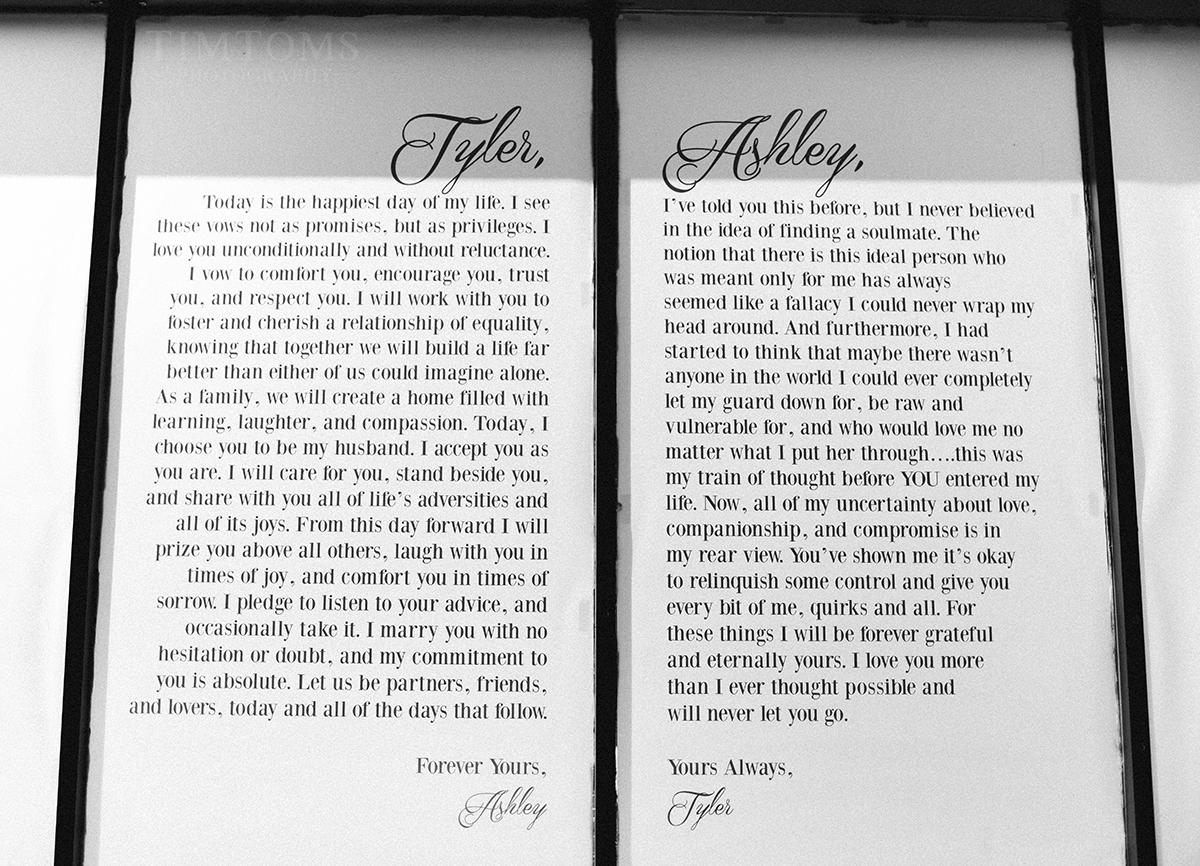 TIMTOMS
PHOTOGRAPHY
Tyler,
Today is the happiest day of my life. I see
these vows not as promises, but as privileges. I
love you unconditionally and without reluctance.
I vow to comfort you, encourage you, trust
you, and respect you. I will work with you to
foster and cherish a relationship of equality,
knowing that together we will build a life far
better than either of us could imagine alone.
As a family, we will create a home filled with
learning, laughter, and compassion. Today, I
choose you to be my husband. I accept you as
you are. I will care for you, stand beside you,
and share with you all of life's adversities and
all of its joys. From this day forward I will
prize you above all others, laugh with you in
times of joy, and comfort you in times of
sorrow. I pledge to listen to your advice, and
occasionally take it. I marry you with no
hesitation or doubt, and my commitment to
you is absolute. Let us be partners, friends,
and lovers, today and all of the days that follow.
Forever Yours,
Ashley
Ashley,
I've told you this before, but I never believed
in the idea of finding a soulmate. The
notion that there is this ideal person who
was meant only for me has always
seemed like a fallacy I could never wrap my
head around. And furthermore, I had
started to think that maybe there wasn't
anyone in the world I could ever completely
let my guard down for, be raw and
vulnerable for, and who would love me no
matter what I put her through....this was
my train of thought before YOU entered my
life. Now, all of my uncertainty about love,
companionship, and compromise is in
my rear view. You've shown me it's okay
to relinquish some control and give you
every bit of me, quirks and all. For
these things I will be forever grateful
and eternally yours. I love you more
than I ever thought possible and
will never let you go.
Yours Always,
Tyler